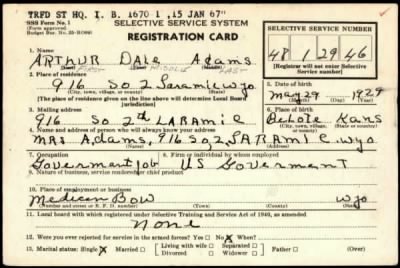 TRFD ST HQ. I. B. 1670 1 ,15 JAN 67"
SSS Form No. 1
(Form approved.
SELECTIVE SERVICE SYSTEM
REGISTRATION CARD
SELECTIVE SERVICE NUMBER
48 29 46
[Registrar will not enter Selective Service number]
1. Name
ARTHUR Dale Adams
FIRST MIDDLE LAST
2. Place of residence
916 So 2 Laramie wyo
(The place of residence given on the line above will determine Local Board jurisdiction)
5. Date of birth
May 29 1929
3. Mailing address
916 So 2th LARAMIE
6. Place of birth
Belote Kans
(City, town, village, or county) (State or country)
4. Name and address of person who will always know your address
MRS Adams, 916 So 2, LARAMIE. wyo
7. Occupation
Goverment job
8. Firm or individual by whom employed
US Goverment
9. Nature of business, service rendered, or chief product
10. Place of employment or business
Medicen Bow wyo
(Number and street or R. F. D. number) (Town) (County) (State)
11. Local board with which registered under Selective Training and Service Act of 1940, as amended
None
12. Were you ever rejected for service in the armed forces? Yes No X When?
13. Marital status: Single X Married Living with wife Divorced Separated Widower Father (Over)